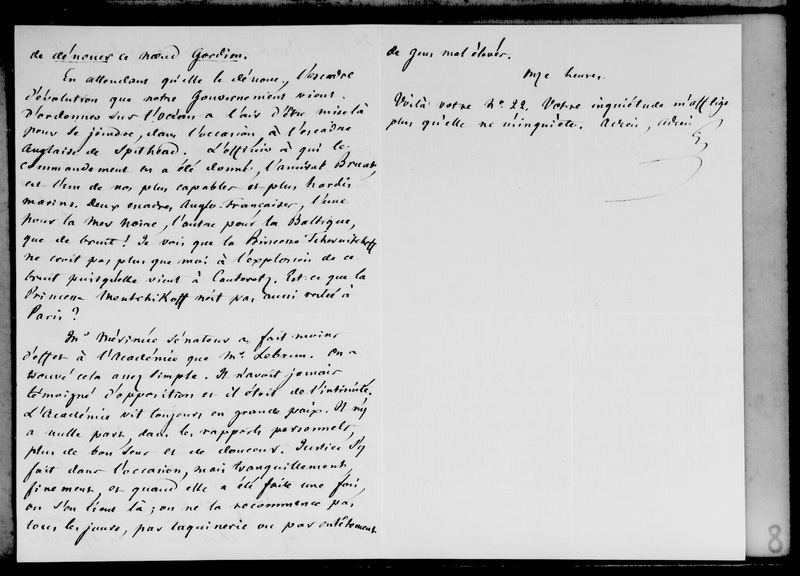 de dénouer ce nœud Gordien.
En attendant qu'elle le dénoue, l'escadre
d'évolution que notre Gouvernement vient
d'ordonner sur l'Océan a l'air d'être mise là
pour se joindre, dans l'occasion, à l'escadre
Anglaise de Spithead. L'officier à qui le
commandement en a été donné, l'amiral Bruat,
est l'un de nos plus capables et plus hardis
marins. Deux escadres Anglo-françaises, l'une
pour la Mer Noire, l'autre pour la Baltique,
que de bruit! Je vois que la Princesse
ne croit pas plus que moi à l'explosion de ce
bruit puisqu'elle vient à Cauteretz. Est-ce que la
Princesse Mentchikoff n'est pas aussi restée à
Paris?
Mr. Mérimée Sénateur a fait moins
d'effet à l'Académie que Mr. Lebrun. On a
trouvé cela assez simple. Il n'avait jamais
témoigné d'opposition et il étoit de l'intimité.
L'Académie vit toujours en grande paix. Il n'y
a nulle part, dans les rapports personnels,
plus de bon sens et de douceur. Justice s'y
fait dans l'occasion, mais tranquillement,
finement, et quand elle a été faite une fois,
on s'en tient là; on ne la recommence pas
tous les jours, par taquinerie ou par entêtement
de gens mal élevés.
Onze heures
Voilà votre No. 22. Votre inquiétude m'afflige
plus qu'elle ne m'inquiète. Adieu, adieu
G
8